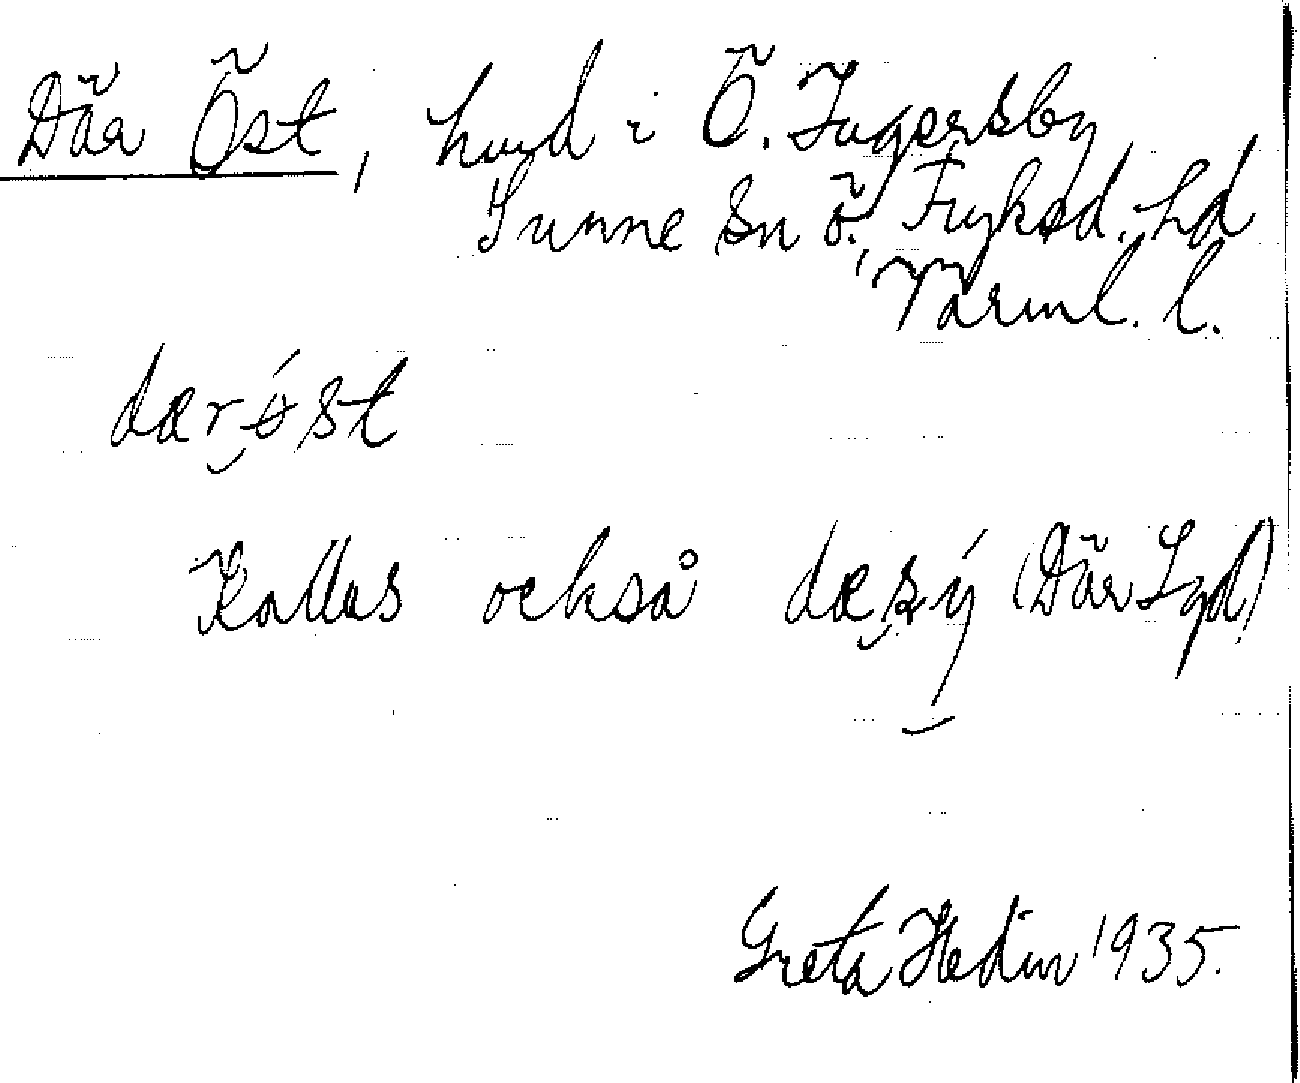 Där Öst, hmd i Ö. Ingersby,
Sunne sn ö., Fryksd. hd
Värml. l.
dærøst
Kallas också dæsy (Där Syd)
Greta Hedin 1935.